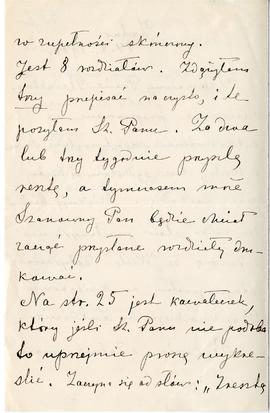 w zupełności skończony.
Jest 8 rozdziałów. Zdążyłem
trzy przepisać na czysto, i te
posyłam Sz. Panu. Za dwa
lub trzy tygodnie przyszlę
resztę, a tymczasem może
Szanowny Pan będzie chciał
zacząć przysłane rozdziały dru-
kować.
Na str. 25 jest kawałeczek,
który jeśli Sz. Panu nie podoba
to uprzejmie proszę wykre-
ślić. Zaczyna się od słów: „Zresztą